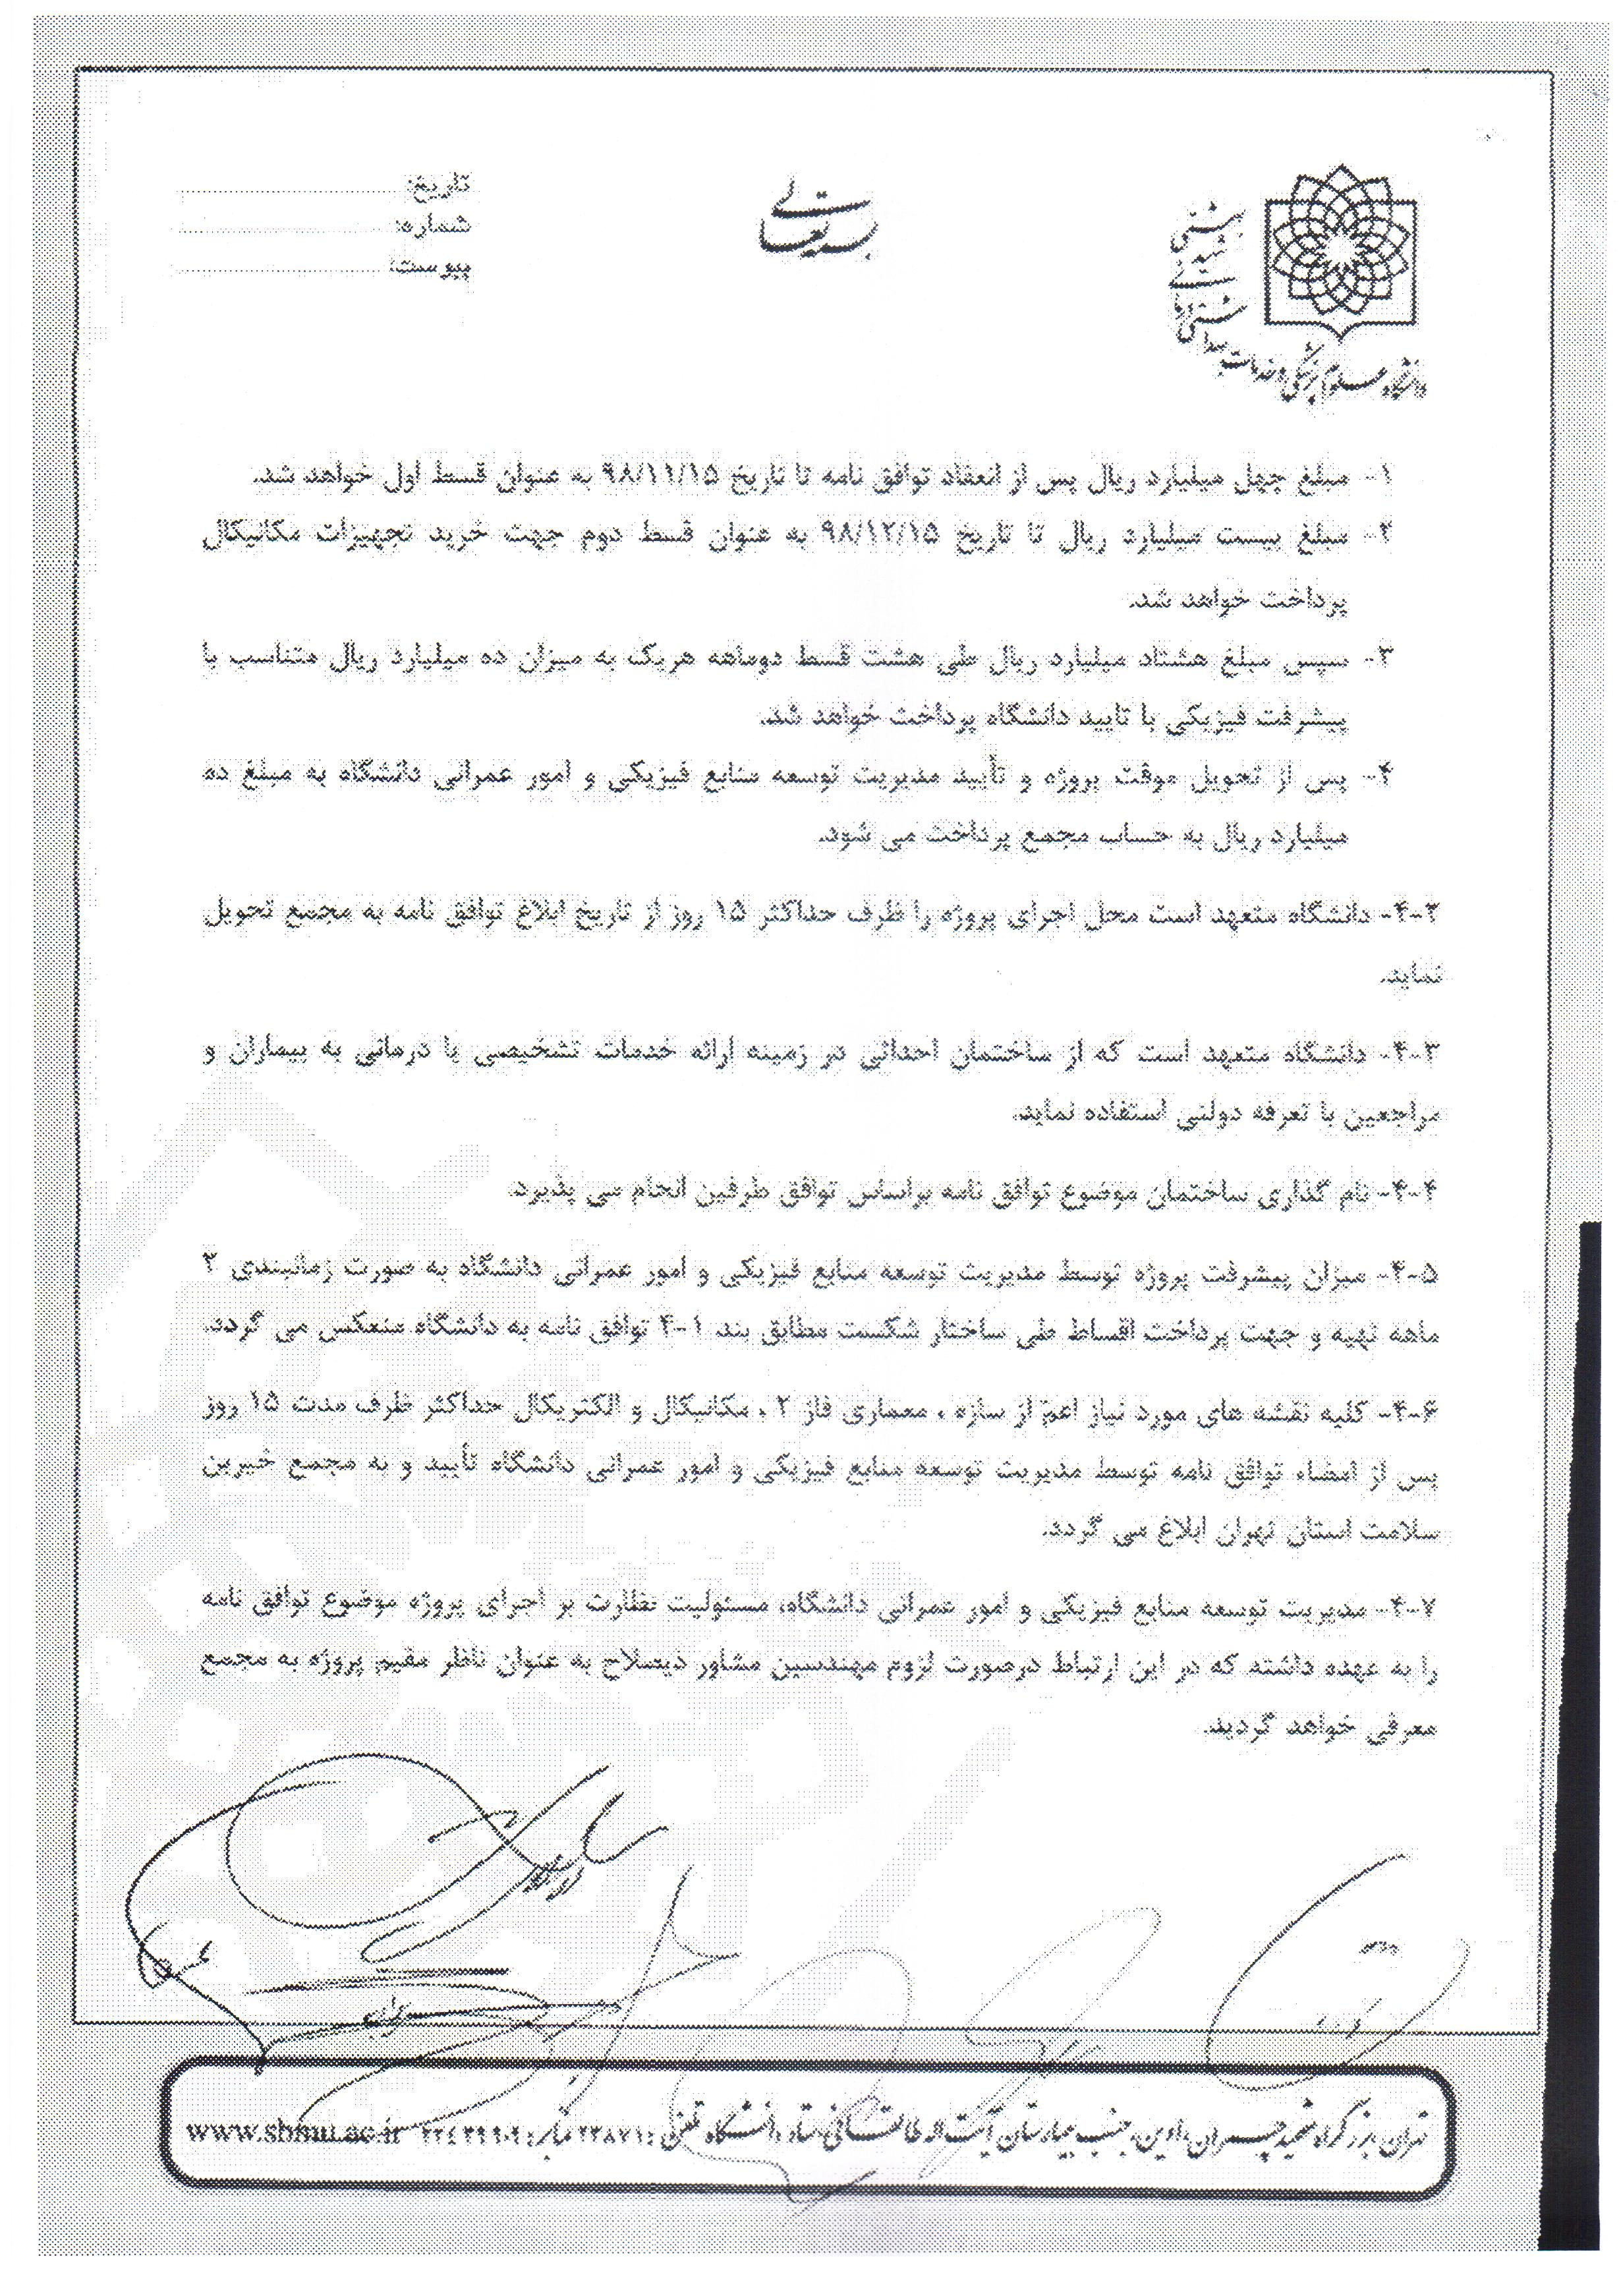 بسمه تعالی
دانشگاه علوم پزشکی و خدمات بهداشتی درمانی شهید بهشتی
تاریخ:
شماره:
پیوست:
۱- مبلغ چهل میلیارد ریال پس از انعقاد توافق نامه تا تاریخ ۹۸/۱۱/۱۵ به عنوان قسط اول خواهد شد.
۲- مبلغ بیست میلیارد ریال تا تاریخ ۹۸/۱۲/۱۵ به عنوان قسط دوم جهت خرید تجهیزات مکانیکال
پرداخت خواهد شد.
۳- سپس مبلغ هشتاد میلیارد ریال طی هشت قسط دوماهه هریک به میزان ده میلیارد ریال متناسب با
پیشرفت فیزیکی با تایید دانشگاه پرداخت خواهد شد.
۴- پس از تحویل موقت پروژه و تأیید مدیریت توسعه منابع فیزیکی و امور عمرانی دانشگاه به مبلغ ده
میلیارد ریال به حساب مجمع پرداخت می شود.
۴-۲- دانشگاه متعهد است محل اجرای پروژه را ظرف حداکثر ۱۵ روز از تاریخ ابلاغ توافق نامه به مجمع تحویل
نماید.
۴-۳- دانشگاه متعهد است که از ساختمان احداثی در زمینه ارائه خدمات تشخیصی یا درمانی به بیماران و
مراجعین با تعرفه دولتی استفاده نماید.
۴-۴- نام گذاری ساختمان موضوع توافق نامه براساس توافق طرفین انجام می پذیرد.
۴-۵- میزان پیشرفت پروژه توسط مدیریت توسعه منابع فیزیکی و امور عمرانی دانشگاه به صورت زمانبندی ۲
ماهه تهیه و جهت پرداخت اقساط طی ساختار شکست مطابق بند ۴-۱ توافق نامه به دانشگاه منعکس می گردد.
۴-۶- کلیه نقشه های مورد نیاز اعم از سازه ، معماری فاز ۲ ، مکانیکال و الکتریکال حداکثر ظرف مدت ۱۵ روز
پس از امضاء توافق نامه توسط مدیریت توسعه منابع فیزیکی و امور عمرانی دانشگاه تأیید و به مجمع خیرین
سلامت استان تهران ابلاغ می گردد.
۴-۷- مدیریت توسعه منابع فیزیکی و امور عمرانی دانشگاه، مسئولیت نظارت بر اجرای پروژه موضوع توافق نامه
را به عهده داشته که در این ارتباط درصورت لزوم مهندسین مشاور ذیصلاح به عنوان ناظر مقیم پروژه به مجمع
معرفی خواهد گردید.
تهران، بزرگراه شهید چمران، اوین، جنب بیمارستان آیت الله طالقانی، ستاد دانشگاه تلفن: ۲۳۸۷۱ نمابر: ۲۲۴۳۹۹۰۹ www.sbmu.ac.ir